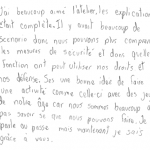 J'ai beaucoup aimé l'atelier, les explications
était complète. Il y avait beaucoup de
scénario donc nous pouvons plus comprendre
les mesures de sécurité et dans quelle
fonction ont peut utiliser nos droits et
nos défense. Ses une bonne idée de faire
une activité comme celle-ci avec des jeunes
de notre âge car nous sommes beaucoup à
pas savoir se que nous pouvons faire. Je
parle au passé mais maintenant je sais
grâce a vous.